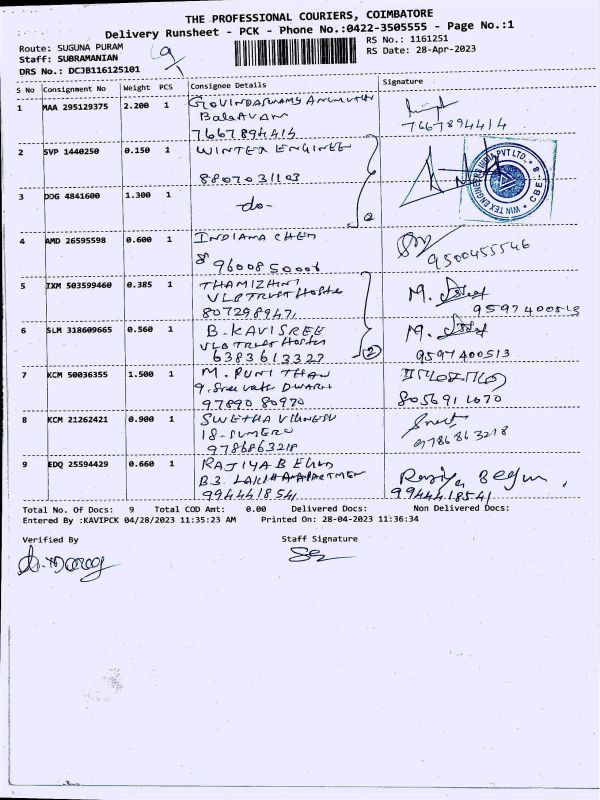 THE PROFESSIONAL COURIERS, COIMBATORE
Delivery Runsheet - PCK - Phone No.:0422-3505555 - Page No.:1
Route: SUGUNA PURAM
Staff: SUBRAMANIAN
DRS No.: DCJB116125101
9/1
RS No.: 1161251
RS Date: 28-Apr-2023
S No Consignment No Weight PCS Consignee Details Signature
1 MAA 295129375 2.200 1 GOVINDASWAMY
BALAAVAN
7667894414 7667894414
2 SVP 1440250 0.150 1 WINTEX ENGINEE
8807031103
WIN TEX ENGINEERS INDIA PVT LTD. CBE
3 DDG 4841600 1.300 1 -do-
2
4 AMD 26595598 0.600 1 INDIANA CHEM
9600850006 9500455546
5 IXM 503599460 0.385 1 THAMIZHINI M.
VLB TRUST HOSTEL
8072989471 9597400513
6 SLM 318609665 0.560 1 B. KAVISREE M.
VLB TRUST HOSTEL
6383613327 2 9597400513
7 KCM 50036355 1.500 1 M. PUNITHAN
9. Sree vats DWARH
97890 80970 8056911070
8 KCM 21262421 0.900 1 SWETHA VIGNESU
18-SUMERU
9786863218 9786863218
9 EDQ 25594429 0.660 1 RAJIYA BEGUM Rajiya Begum.
B3 APARTMEN
9944418541 9944418541
Total No. Of Docs: 9 Total COD Amt: 0.00 Delivered Docs: Non Delivered Docs:
Entered By :KAVIPCK 04/28/2023 11:35:23 AM Printed On: 28-04-2023 11:36:34
Verified By Staff Signature